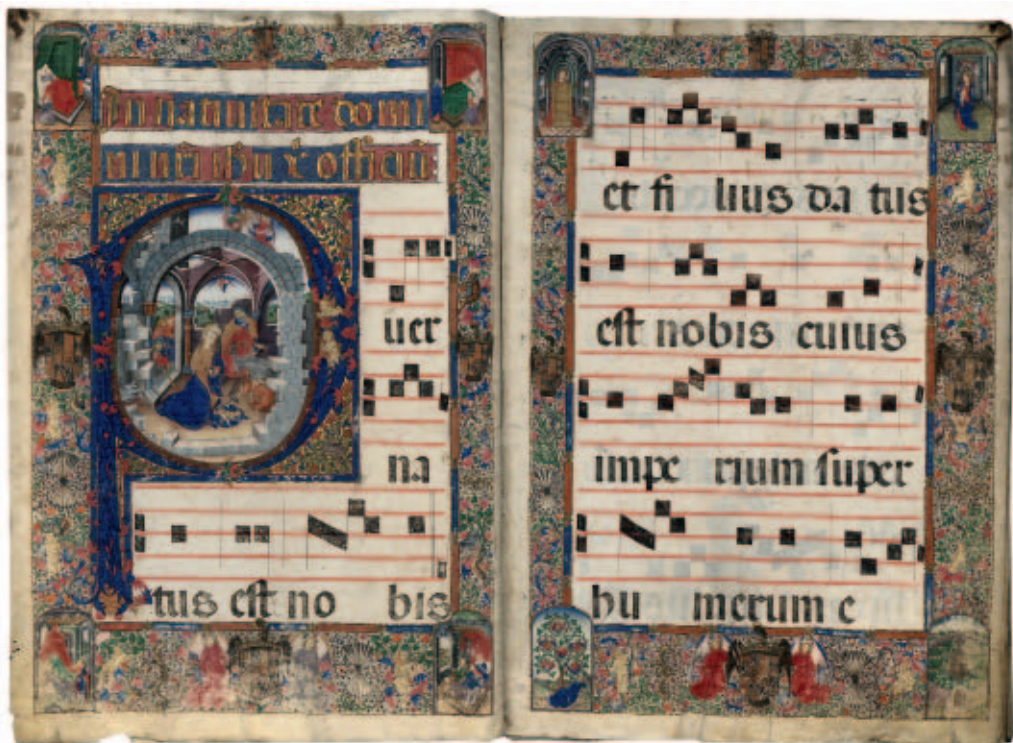 In natiuitate domi
ni nri ihu xi officiu
Puer
na
tus est no bis
et fi lius da tus
est nobis cuius
impe rium super
hu merum e